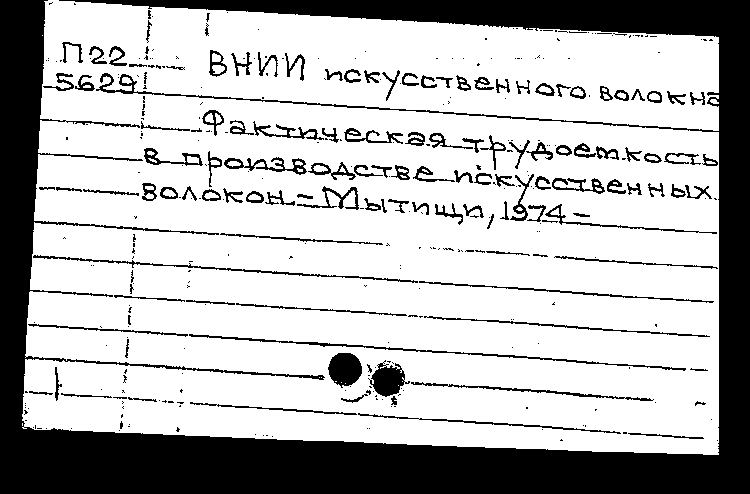 П22
5629
ВНИИ искусственного волокна
Фактическая трудоемкость
в производстве искусственных
волокон. – Мытищи, 1974 –